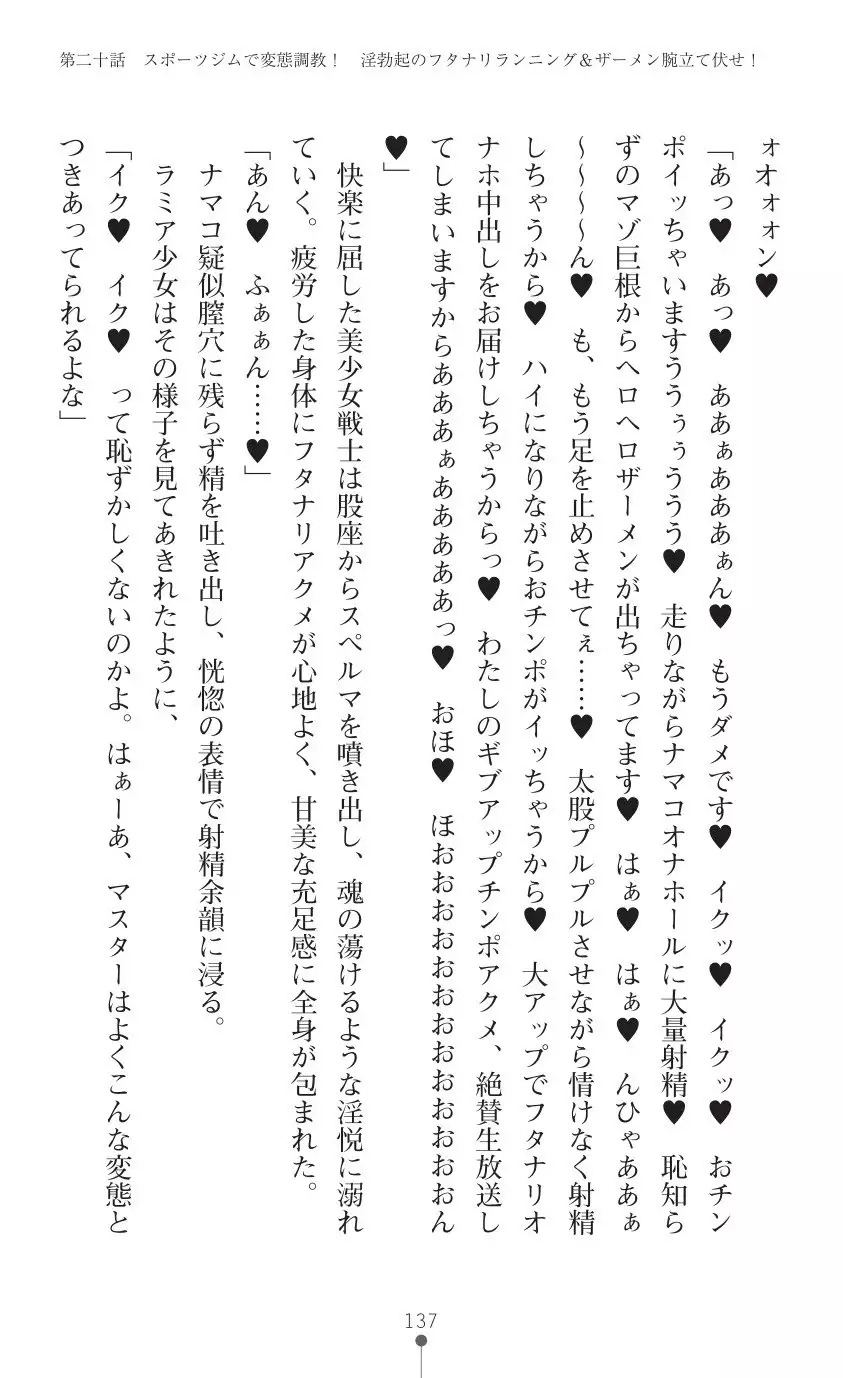 第二十話　スポーツジムで変態調教！　淫勃起のフタナリランニング＆ザーメン腕立て伏せ！
ォオォォン♥
「あっ♥　あっ♥　ああぁあああぁん♥　もうダメです♥　イクッ♥　イクッ♥　おチン
ポイッちゃいますううぅぅううう♥　走りながらナマコオナホールに大量射精♥　恥知ら
ずのマゾ巨根からヘロヘロザーメンが出ちゃってます♥　はぁ♥　はぁ♥　んひゃああぁ
～～～～ん♥　も、もう足を止めさせてぇ……♥　太股プルプルさせながら情けなく射精
しちゃうから♥　ハイになりながらおチンポがイッちゃうから♥　大アップでフタナリオ
ナホ中出しをお届けしちゃうからっ♥　わたしのギブアップチンポアクメ、絶賛生放送し
てしまいますからあああぁあああああっ♥　おほ♥　ほおおおおおおおおおおおおおおん
♥」
　快楽に屈した美少女戦士は股座からスペルマを噴き出し、魂の蕩けるような淫悦に溺れ
ていく。疲労した身体にフタナリアクメが心地よく、甘美な充足感に全身が包まれた。
「あん♥　ふぁぁん……♥」
　ナマコ疑似膣穴に残らず精を吐き出し、恍惚の表情で射精余韻に浸る。
　ラミア少女はその様子を見てあきれたように、
「イク♥　イク♥　って恥ずかしくないのかよ。はぁーあ、マスターはよくこんな変態と
つきあってられるよな」
137